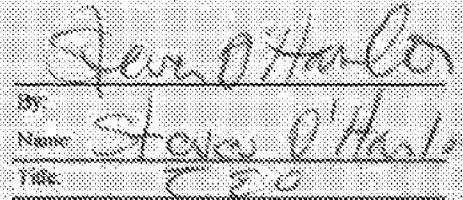 Steven O'Hanlon
By:
Name: Steven O'Hanlo
Title: CEO